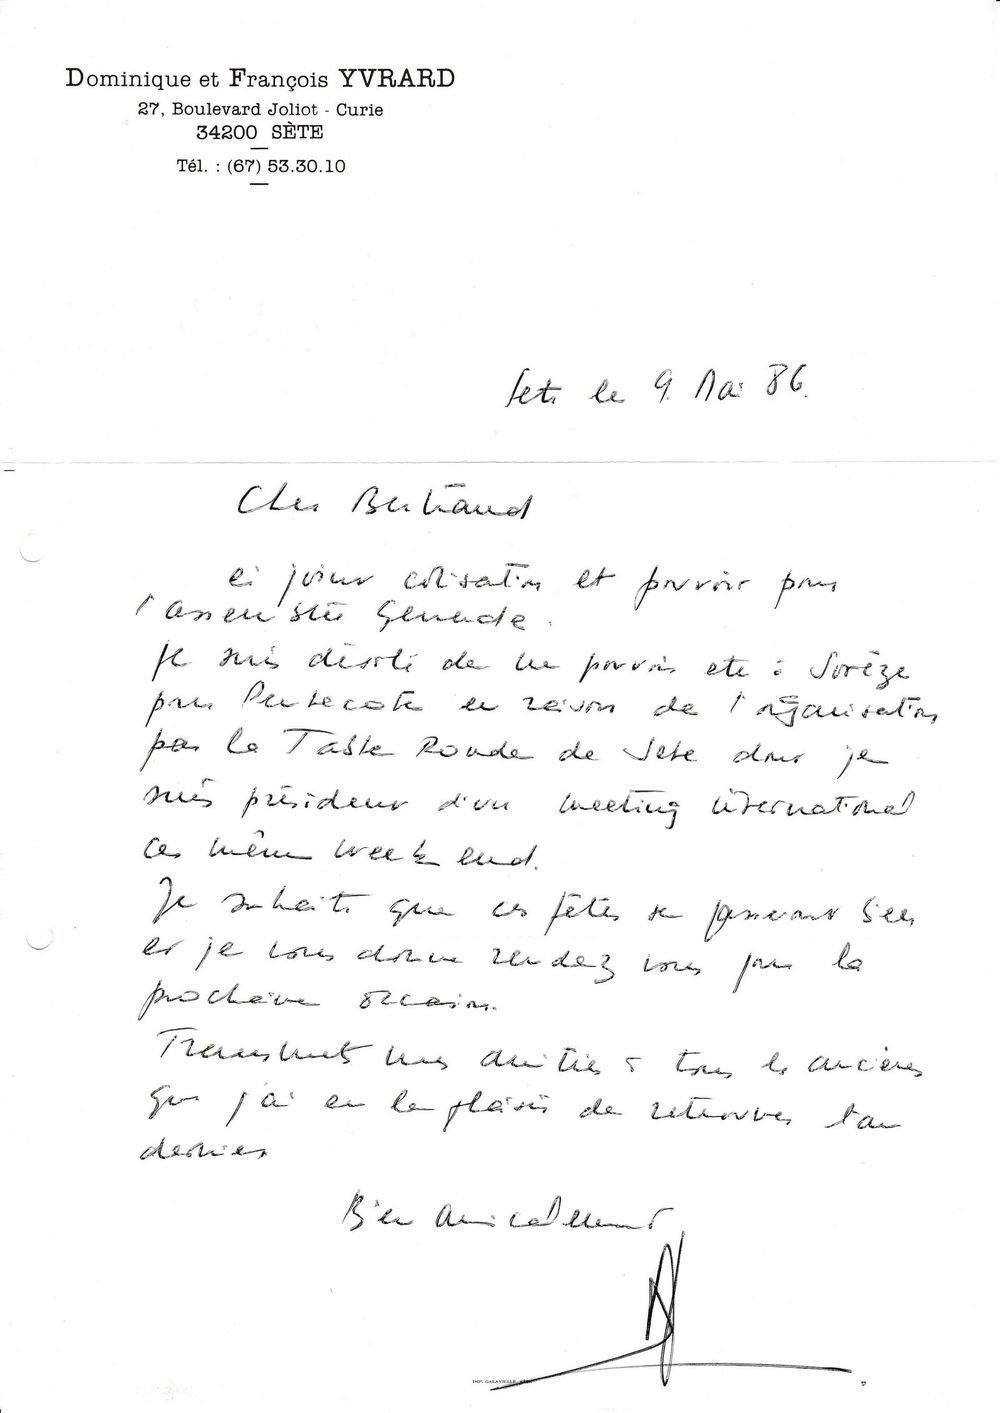 Dominique et François YVRARD
27, Boulevard Joliot - Curie
34200 SÈTE
Tél. : (67) 53.30.10
Sete le 9 Mai 86.
Cher Bertrand
ci joint cotisation et pouvoir pour
l'assemblée Generale.
Je suis désolé de ne pouvoir etre à Sorèze
pour Pentecote en raison de l'organisation
par la Table Ronde de Sete dont je
suis président d'un meeting international
ce même week end.
Je souhaite que ces fêtes se passeront bien
et je vous donne rendez vous pour la
prochaine occasion.
Transmet mes amitiés à tous les anciens
que j'ai eu le plaisir de retrouver l'an
dernier
Bien Amicalement
IMP. GALAVIELLE - SÈTE